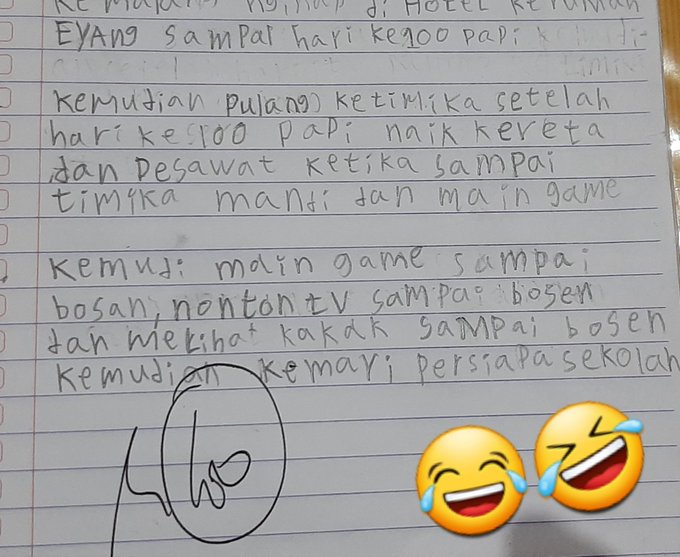 Ke malang nginap di Hotel Kerumah
EYAng Sampai hari ke100 papi
Kemudian pulang ketimika setelah
hari ke100 papi naik kereta
dan Pesawat Ketika sampai
timika mandi dan main game
Kemudi main game sampai
bosan, nonton tv sampai bosen
dan melihat kakak sampai bosen
Kemudian Kemari persiapa sekolah
100